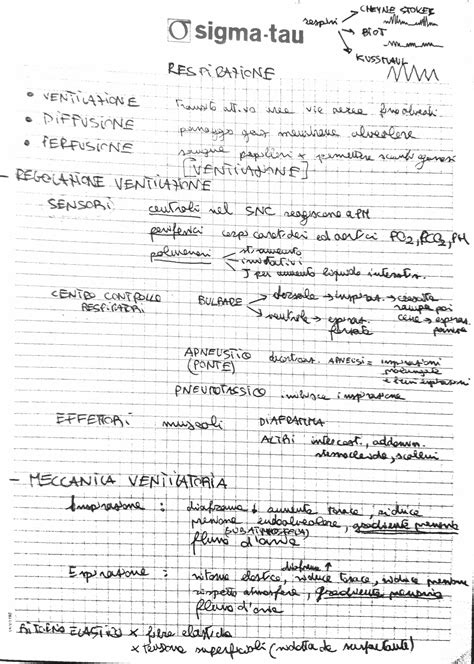 respiri → CHEYNE STOKES
→ BIOT
→ KUSSMAUL
sigma-tau
RESPIRAZIONE
• VENTILAZIONE transito attivo aria vie aeree fino alveoli
• DIFFUSIONE passaggio gas membrana alveolare
• PERFUSIONE sangue capillari x permettere scambi gassosi
[VENTILAZIONE]
– REGOLAZIONE VENTILAZIONE
SENSORI centrali nel SNC reagiscono a PH
periferici corpo carotideo ed aortici PO2, PCO2, PH
polmonari → stiramento
→ irritativi
→ J per aumento liquido interstiz.
CENTRO CONTROLLO RESPIRATORI BULBARE → dorsale → inspiraz. → crescita rampa poi
→ ventrale → espiraz. forzata
APNEUSTICO (PONTE) APNEUSI = inspirazioni prolungate e brevi espirazioni
PNEUMOTASSICO inibisce inspirazione
EFFETTORI muscoli DIAFRAMMA
ALTRI intercost., addomin. sternocleido, scaleni
– MECCANICA VENTILATORIA
Inspirazione : diaframma ↓ aumenta torace, riduce
pressione endoalveolare, gradiente pressorio
(SUBATMOSFERICA)
flusso d'aria
diaframma ↑
Espirazione : ritorno elastico, riduce torace, riduce pressione
rispetto atmosfera, gradiente pressorio
flusso d'aria
RITORNO ELASTICO x fibre elastiche
x tensione superficiale (ridotta da surfactante)